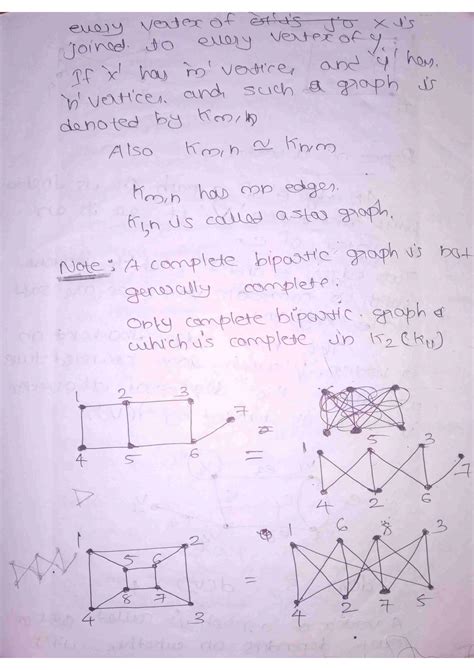 every vertex of x is
joined to every vertex of y.
If 'x' has 'm' vertices and 'y' has
'n' vertices and such a graph is
denoted by Km,n
Also Km,n ≃ Kn,m
Km,n has mn edges.
K1,n is called a star graph.
Note: A complete bipartic graph is not
generally complete.
Only complete bipartic graph
which is complete is K2 (K1,1)
1 2 3
7
4 5 6
=
=
1 5 3
7
4 2 6
1 2
5 6
8 7
4 3
=
1 6 8 3
4 2 7 5